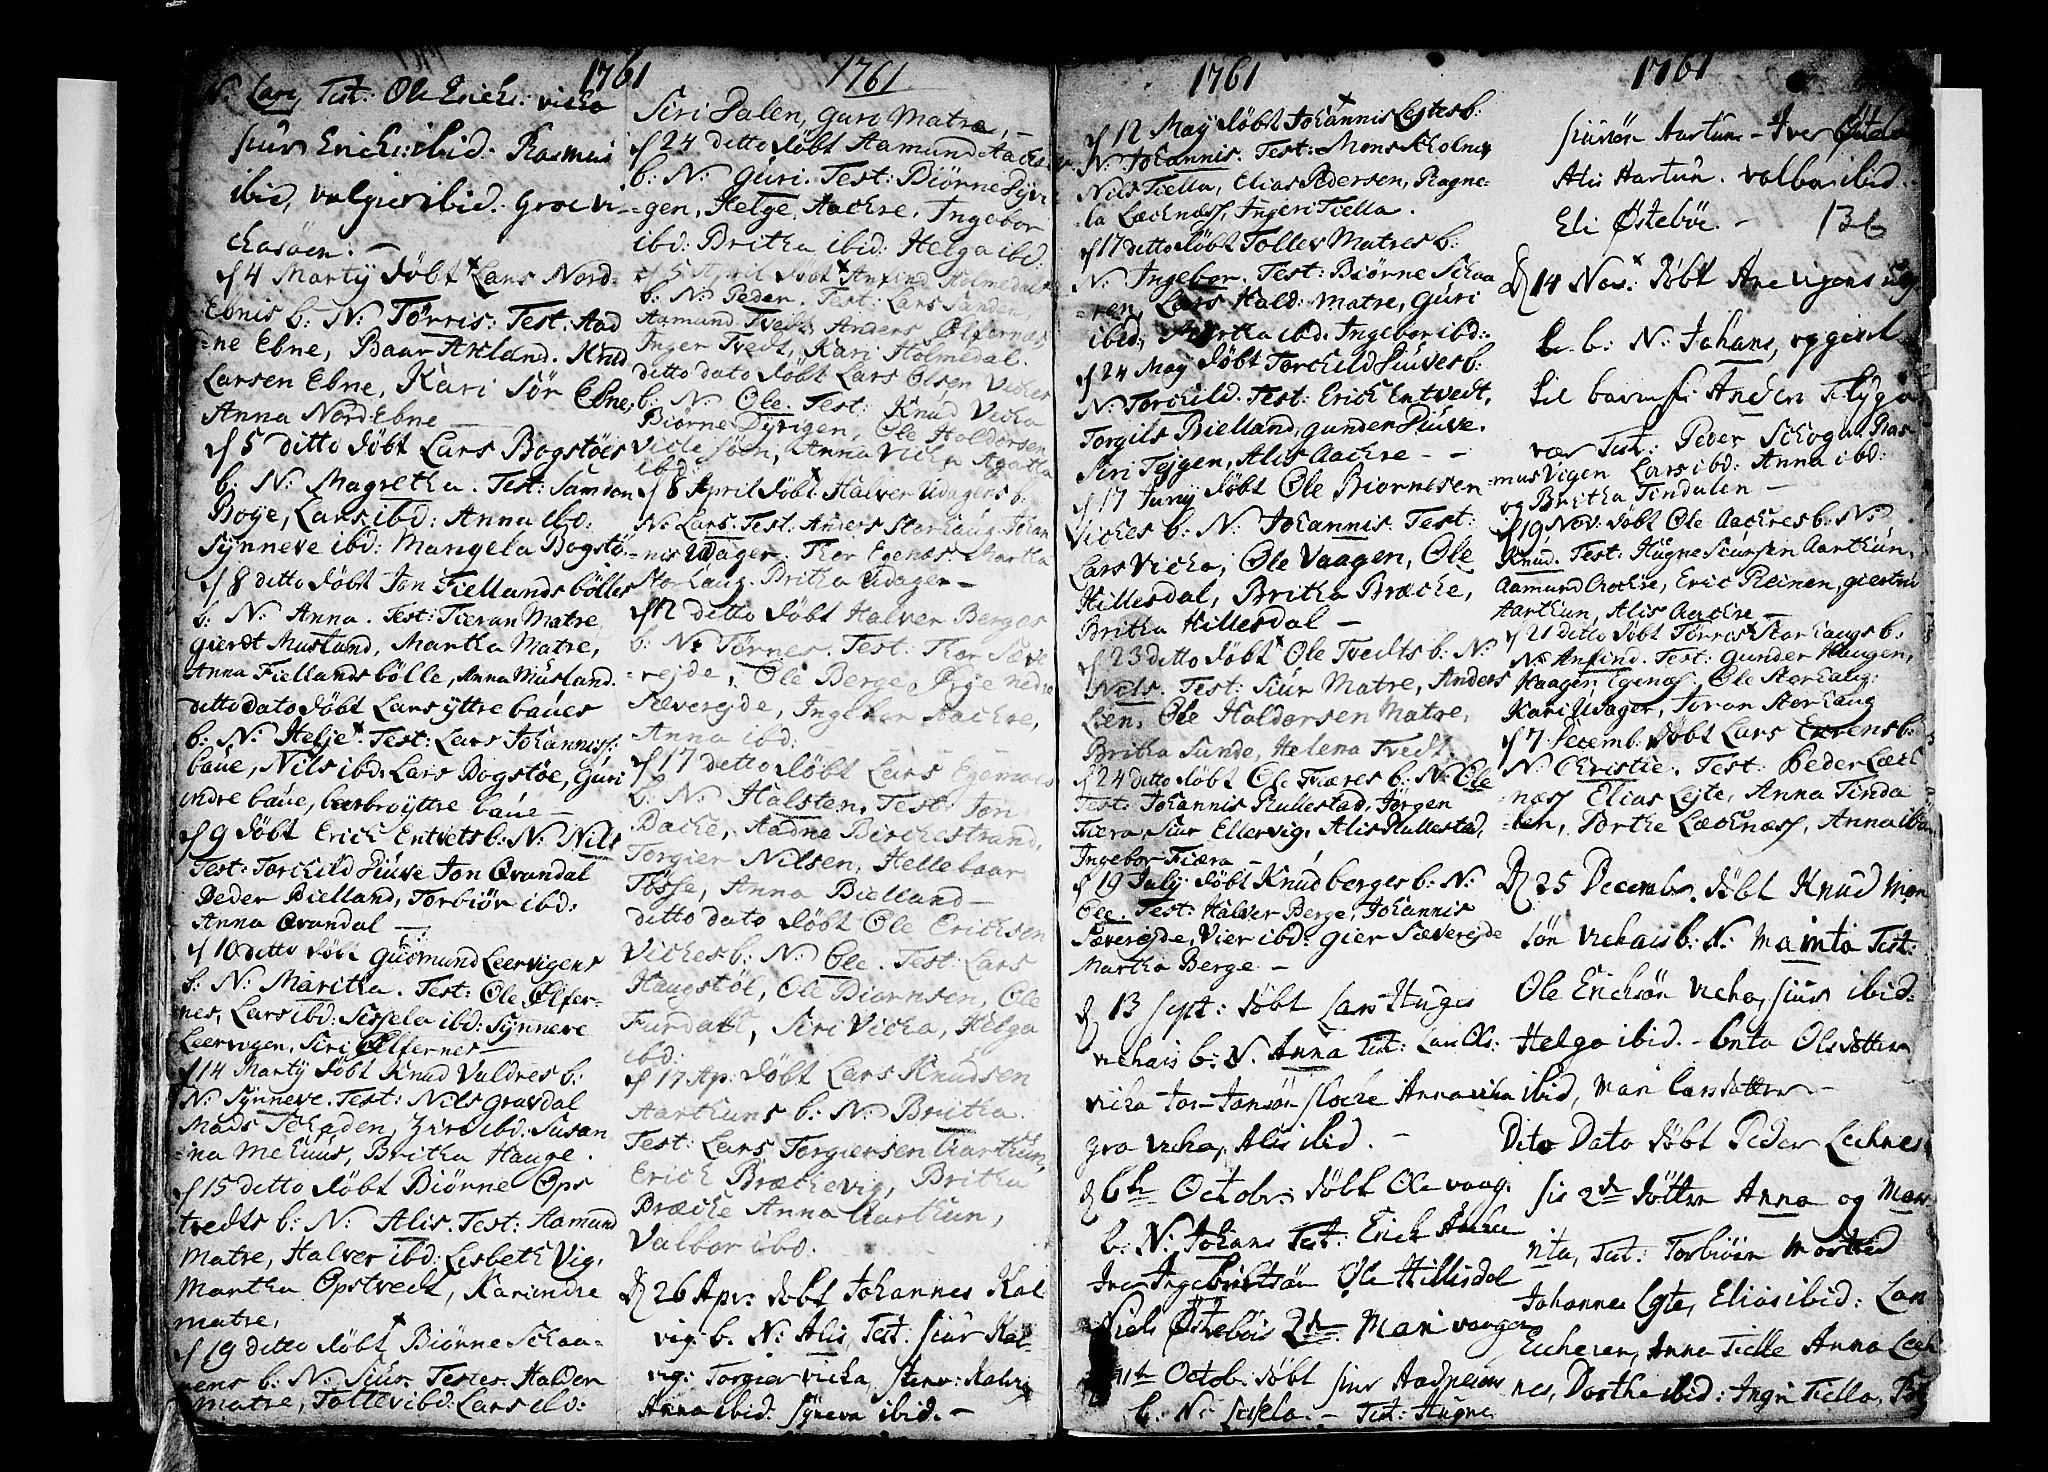 1761
N: Lars, Test: Ole Erichs: vicka
siur Erichs: ibid: Rasmus
ibid, valgier ibid. Groe vi-
chasöen. -
d 4 Martij döbt Lars Nord-
Ebnis b: N: Törris: Test: Aad
ne Ebne, Baar Axland. Knud
Larsen Ebne, Kari Sör Ebne,
Anna Nord Ebne
d 5 ditto döbt Lars Bogstöes
b: N: Magretha. Test: Samson
Boye, Lars ibd: Anna ibd:
Synneve ibd: Mangela Bogstö
d 8 ditto döbt Jon Fiellandsbölles
b: N: Anna. Test: Tieran Matre,
gierdt Musland, Martha Matre,
Anna Fiellandsbölle, Anna Musland.
ditto dato döbt Lars yttre baues
b: N: Helje. Test: Lars Johanniss:
baue, Nils ibd: Lars Bogstöe, Guri
indre baue, barbro yttre baue -
d 9 döbt Erich Entvets b: N: Nils
Test: Torchild Siuve Jon Qvandal
Peder Bielland, Torbiör ibd:
Anna Qvandal -
d 10 ditto döbt Gudmund Leervigens
b: N: Maritha. Test: Ole Ølfer-
nes, Lars ibd: Sissela ibd: Synneve
Leervigen, Siri Ølfernes
d 14 Martij döbt Knud Valdres b:
N: Synneve. Test: Nils Gravdal
Mads Schaden, Zira ibd: Susan
=na Mehuus, Britha Hauge.
d 15 ditto döbt Biörne Ops
tvedts b: N: Alis. Test: Aamund
Matre, Halver ibd: Lisbeth Vig,
Martha Opstvedt, Kari indre
matre,
d 19 ditto döbt Biörne Schaa-
nens b: N: Siur. Testes. Halder
matre, Tollev ibd: Lars ibd:
1761
Siri Dalen, Guri Matre, -
d 24 ditto döbt Aamund Aachres
b: N: Guri. Test: Biörne Dyri-
=gen, Helge Aachre, Ingebor
ibd: Britha ibid: Helga ibd:
d 5 April döbt Anfind Holmedals
b: N: Peder. Test: Lars Sanden
Aamund Tvedt, Anders Ølfernes
Inger Tvedt, Kari Holmedal.
ditto dato döbt Lars Olsen Viches
b: N: Ole. Test: Knud Vicka
Biörne Dyrigen, Ole Haldorsen
Viche söen, Anna Vicka Agatha
ibd:
d 8 April döbt Halver Udagens b:
N: Lars. Test. Anders Storhaug. Johan
nis Udager. Thor Egenæs. Martha
Storhaug. Britha Udager -
d 12 ditto döbt Halver Berges
b: N: Törnes. Test: Thor Sæve
=rejde, Ole Berge, Brge nedre
Sæverejde, Ingebor Aachre,
Anna ibd:
d 17 ditto döbt Lars Egenæs
b: N: Halsten, Test: Jon
Bache, Aadne Birchestrand,
Torgier Nilsen, Helle baar
Tösse, Anna Bielland -
ditto dato döbt Ole Erichsen
Viches b: N: Ole. Test: Lars
Haugstöl, Ole Biörnsen, Ole
Furdahl, Siri Vicka, Helga
ibd:
d 17 Ap: döbt Lars Knudsen
Aarthuns b: N: Britha.
Test: Lars Torgiersen Aarthun,
Erich Bræchevig, Britha
Bræche Anna Aarthun,
Valbor ibd.
D 26 Apr: döbt Johannes Kal
vig: b. N: Alis, Test: siur Kal-
vig: Torgier vicka, stenv: Kalvig
Anna ibid: syneva ibid. -
1761
d 12 May döbt Johannis Lejtes b:
N: Johannis. Test: Mons Scholmen
Nils Tiella, Elias Pedersen, Ragne-
la Lachnæss, Ingeri Tiella.
d 17 ditto döbt Tollev Matres b:
N: Ingebor. Test: Biörne Schaa
=ren, Lars Hald: Matre, Guri
ibid, Martha ibd. Ingebor ibd:
d 24 May döbt Torchild Siuves b:
N: Torchild. Test: Erich Entvedt,
Torgils Bielland, gunder Siuve.
Siri Tejgen, Alis Aachre - -
d 17 Junij döbt Ole Biornesen
Viches b: N: Johannis. Test:
Lars Vicka, Ole Vaagen, Ole
Hillesdal, Britha Bræche,
Britha Hillesdal -
d 23 ditto döbt Ole Tvedts b: N:
Nils. Test: Siur Matre, Anders
Lien, Ole Haldorsen Matre,
Britha Sunde, Helena Tvedt.
d 24 ditto döbt Ole Fiæres b: N: Ole
Test: Johannis Rullestad, Jörgen
Fiæra, Siur Ellervig, Alis Rullestad,
Ingebor Fiæra -
d 19 July döbt Knud berges b: N:
Ole. Test: Halver Berge, Johannis
Sæverejde, Vier ibd: gier Sæverejde
Martha Berge -
d 13 Sept: döbt Lars Huges
vickais b: N. Anna Test: Lars Ols:
vicka Jon Jonsön slocke Anna vicka
gro vicka, Alis ibid. -
d 6te Octobr: döbt Ole vaag.
b: N: Johans Test: Erich Aachre
Iver Ingebrichtsön Ole Hillisdal
Siels Østebois 2de Mari vaagen
11te Octob: döbt siur Aadneson
b: N: sissela. - Test: Hugne
1761
siursön Aartun - Iver
Alis Hartun. valbar ibid. -
Eli Østeböe. - 136
D 14 Nov: döbt Ane vigens
b: N: Johans, opgived
til barnf: Anders Flyga
vær Test: Peder Schoga Ras-
mus Vigen Lars ibd: Anna ibd:
og Britha Tindalen -
d 19 Nov: döbt Ole Aachres b: N:
Knud. Test: Hugne Siursen Aarthun,
Aamund Aachre, Eric Reinen, giertru
Aarthun, Alis Aachre -
d 21 ditto döbt Törres Storhaugs b:
N: Anfind. Test: Gunder Haugen,
Haager Egenæs, Ole Storhaug:
Kari Udager, Joran Storhaug
d 7 Decemb. döbt Lars Eckrens b:
N: Christie. Test: Peder Læck
=næss Elias Lejte, Anna Tinda
=len, Torthe Læchnæss, Anna ibd
D 25 Decembr. döbt Knud Mon
sön vickais b: N: Marita Test:
Ole Erichsön vicka, siur ibid:
Helga ibid. - brita Olsdötter
ibid, Mari larsdatter -
Dito Dato döbt Peder Lechnes
sis 2de döttre Anna og Mar
ritta, Test: Torbiörn Mosteed
Johannes Lejte, Elias ibid: Lars
Eickeren, Anna Tielle Anna Lech
nes, Dorthe ibid: Ingri Tiella,